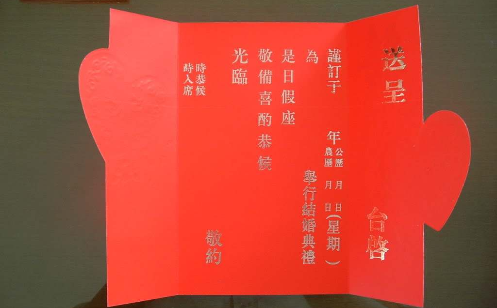 送呈 台啓
謹訂于 年 公曆 月 日 農曆 月 日 (星期 )
為 舉行結婚典禮
是日假座
敬備喜酌恭候
光臨
敬約
時恭候
時入席